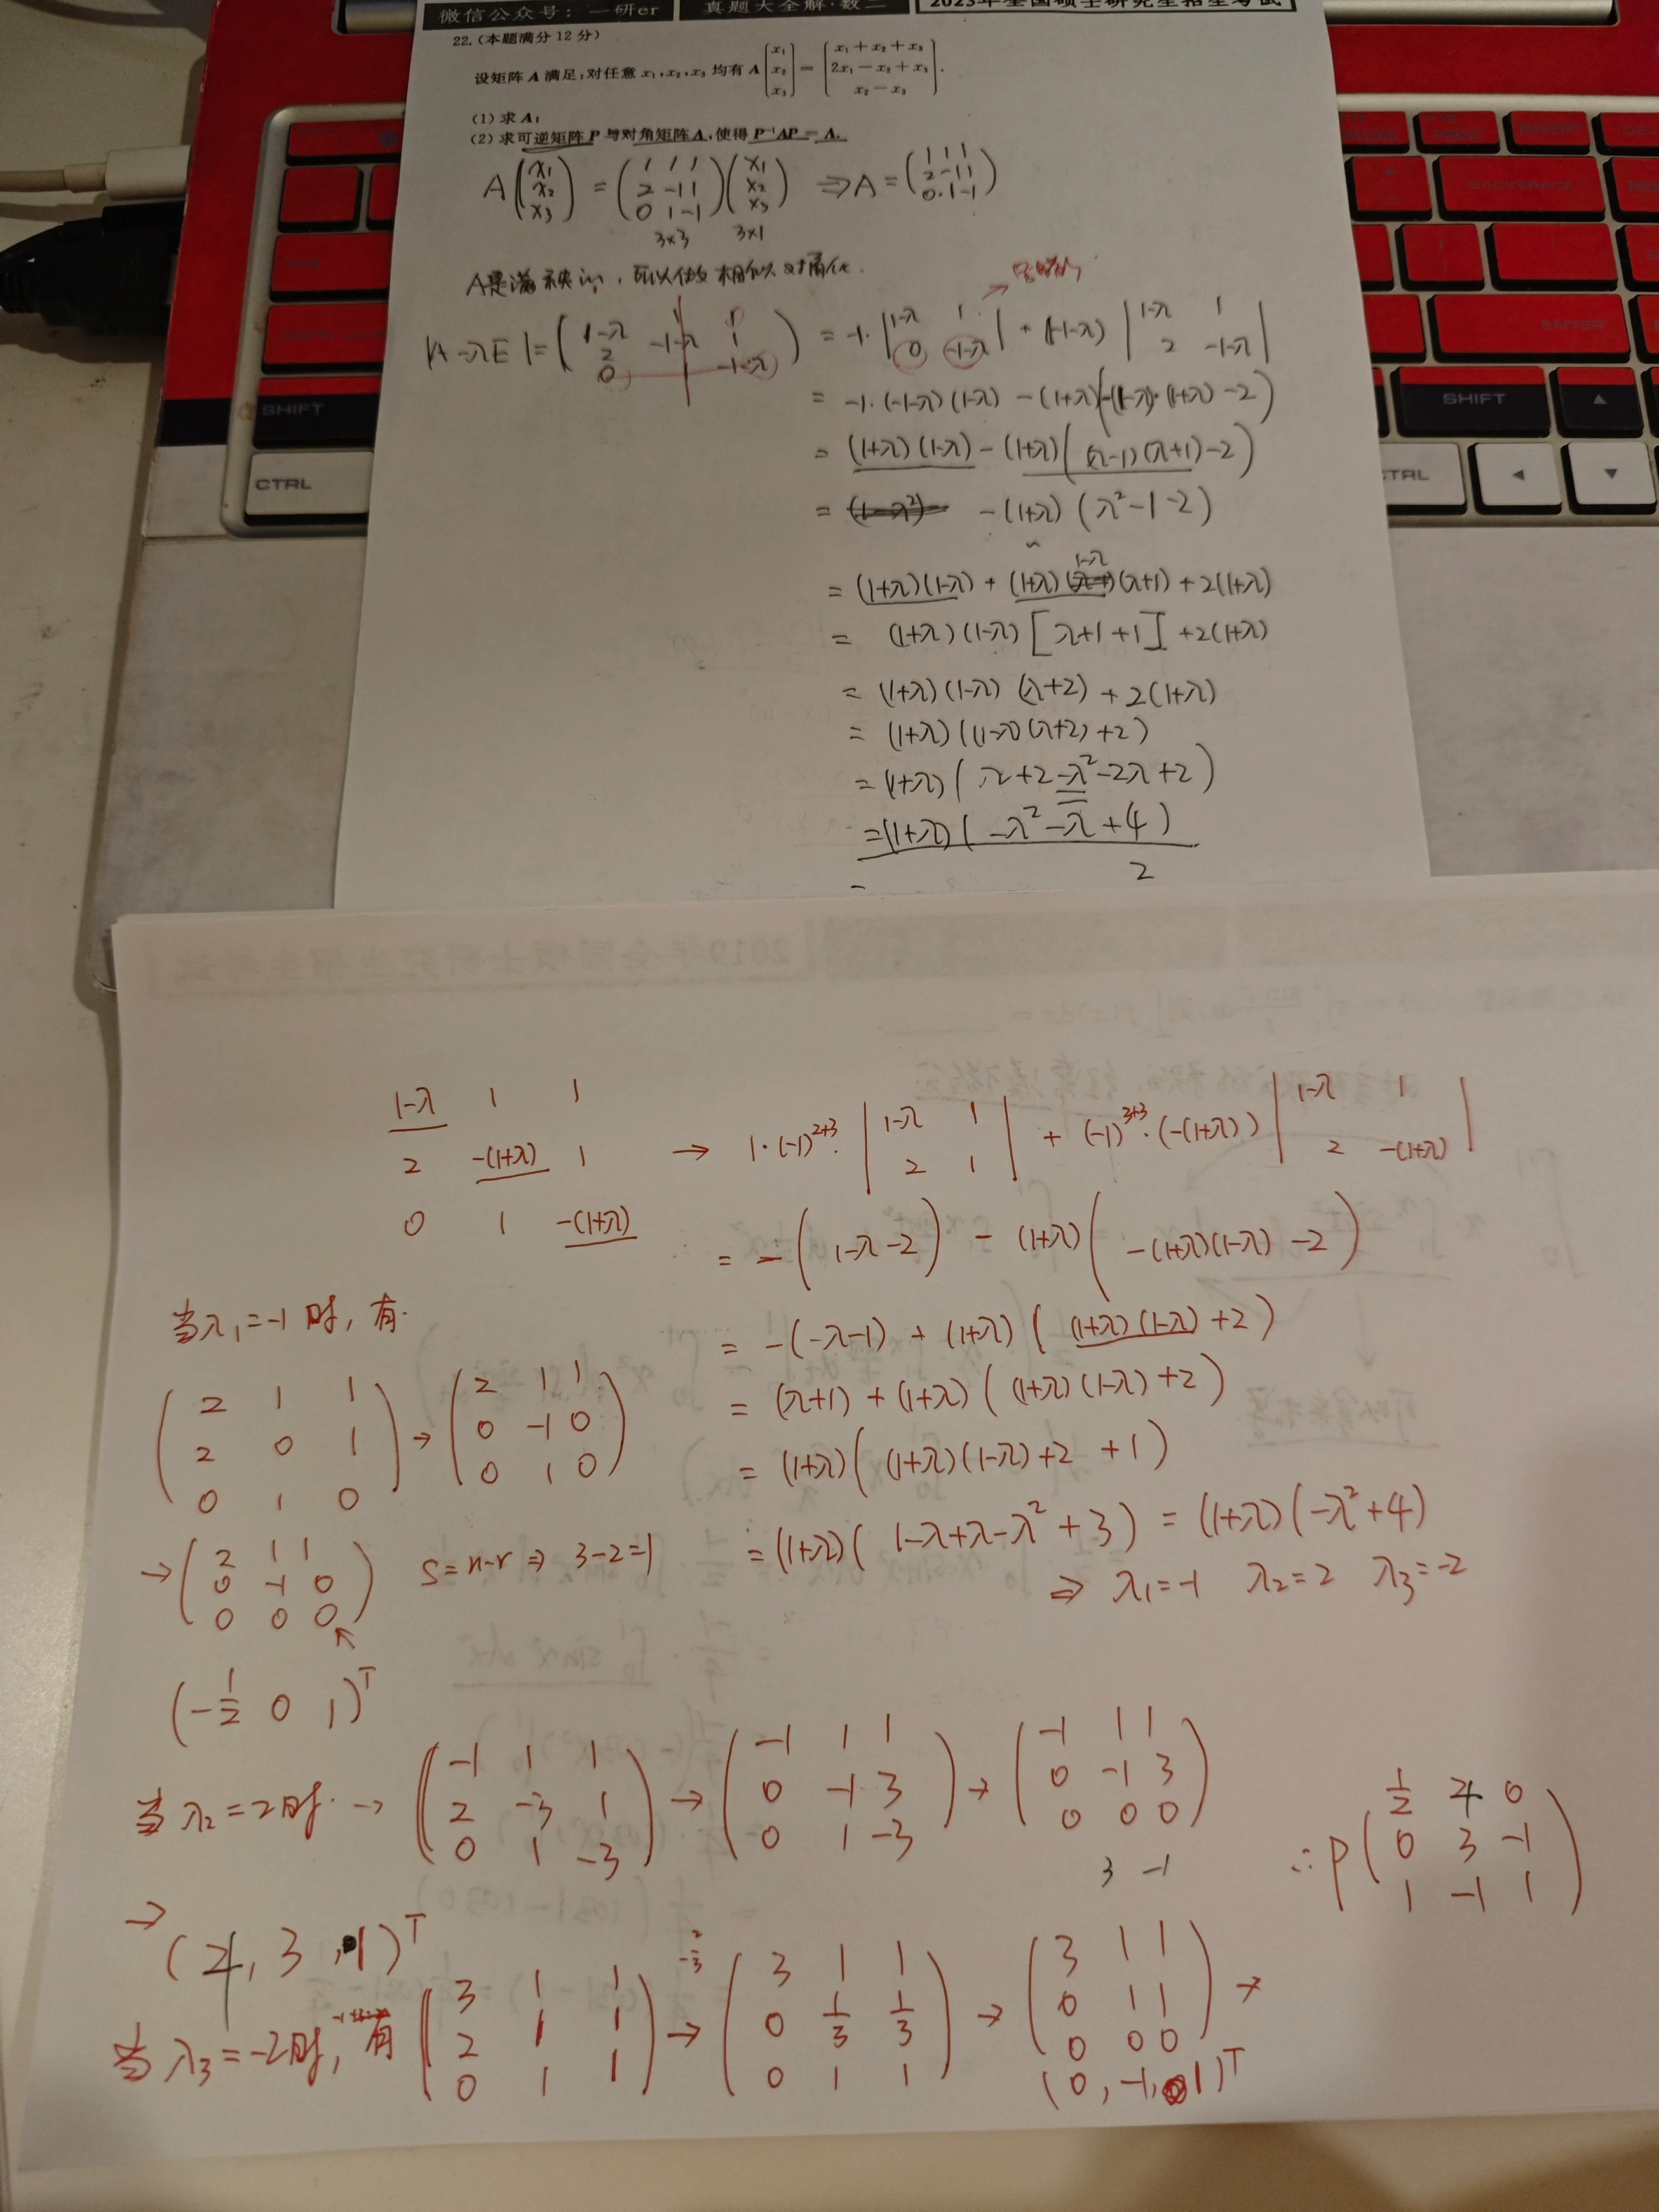 微信公众号：一研er 真题大全解·数二 2023年全国硕士研究生招生考试
22.(本题满分12分)
设矩阵A满足:对任意x₁,x₂,x₃均有A[x₁ x₂ x₃]=[x₁+x₂+x₃ 2x₁-x₂+x₃ x₂-x₃].
(1)求A;
(2)求可逆矩阵P与对角矩阵Λ,使得P⁻¹AP=Λ.
A(x₁ x₂ x₃) = (1 1 1 2 -1 1 0 1 -1)(x₁ x₂ x₃) ⇒ A = (1 1 1 2 -1 1 0 1 -1)
3×3 3×1
A是满秩的,可以做相似对角化.
|A-λE| = (1-λ 1 1 2 -1-λ 1 0 -1-λ) = -1·|1-λ 1 0 -1-λ| + (-1-λ)|1-λ 1 2 -1-λ|
= -1·(-1-λ)(1-λ) - (1+λ)(-(1-λ)·(1+λ)-2)
= (1+λ)(1-λ) - (1+λ)((λ-1)(λ+1)-2)
= -(1+λ)(λ²-1-2)
= (1+λ)(1-λ) + (1+λ)(1-λ)(λ+1) + 2(1+λ)
= (1+λ)(1-λ)[λ+1+1] + 2(1+λ)
= (1+λ)(1-λ)(λ+2) + 2(1+λ)
= (1+λ)((1-λ)(λ+2)+2)
= (1+λ)(λ+2-λ²-2λ+2)
= (1+λ)(-λ²-λ+4)
2
SHIFT
CTRL
SHIFT
ENTER
BACKSPACE
INSERT
1-λ 1 1
2 -(1+λ) 1 → 1·(-1)²⁺³·|1-λ 1 2 1| + (-1)³⁺³·(-(1+λ))|1-λ 1 2 -(1+λ)|
0 1 -(1+λ)
= -(1-λ-2) - (1+λ)(-(1+λ)(1-λ)-2)
= -(-λ-1) + (1+λ)((1+λ)(1-λ)+2)
= (λ+1) + (1+λ)((1+λ)(1-λ)+2)
= (1+λ)((1+λ)(1-λ)+2+1)
= (1+λ)(1-λ+λ-λ²+3) = (1+λ)(-λ²+4)
⇒ λ₁=-1 λ₂=2 λ₃=-2
当λ₁=-1时,有.
(2 1 1 2 0 1 0 1 0) → (2 1 1 0 -1 0 0 1 0)
→ (2 1 1 0 -1 0 0 0 0) S=n-r ⇒ 3-2=1
(-1/2 0 1)ᵀ
当λ₂=2时. → (-1 1 1 2 -3 1 0 1 -3) → (-1 1 1 0 -1 3 0 1 -3) → (-1 1 1 0 -1 3 0 0 0)
3 -1
→ (4, 3, 1)ᵀ
当λ₃=-2时,有 (3 1 1 2 1 1 0 1 1) → (3 1 1 0 1/3 1/3 0 1 1) → (3 1 1 0 1 1 0 0 0) →
(0, -1, 1)ᵀ
∴ P(1/2 4 0 0 3 -1 1 -1 1)